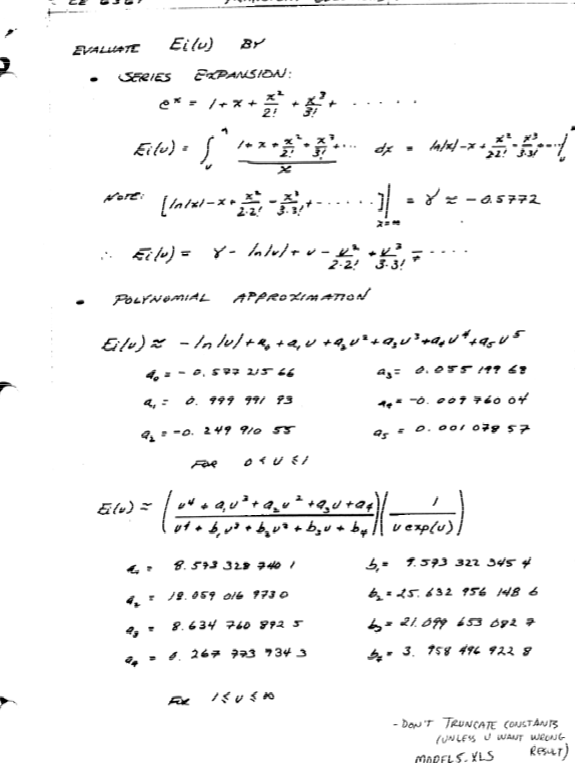 CE 6361
EVALUATE Ei(u) BY
• SERIES EXPANSION:
e^x = 1 + x + x²/2! + x³/3! + · · · · ·
Ei(u) = ∫_u^∞ (1 + x + x²/2! + x³/3! + ···)/x dx = ln|x| - x + x²/2·2! - x³/3·3! + ···|_u^∞
NOTE: [ln|x| - x + x²/2·2! - x³/3·3! + · · · · · ·]|_{x=∞} = γ ≈ -0.5772
∴ Ei(u) = γ - ln|u| + u - u²/2·2! + u³/3·3! ∓ · · · ·
• POLYNOMIAL APPROXIMATION
Ei(u) ≈ - ln|u| + a₀ + a₁u + a₂u² + a₃u³ + a₄u⁴ + a₅u⁵
a₀ = - 0.577 215 66 a₃ = 0.055 199 68
a₁ = 0.999 991 93 a₄ = -0.009 760 04
a₂ = -0.249 910 55 a₅ = 0.001 078 57
FOR 0 ≤ U ≤ 1
Ei(u) ≈ ((u⁴ + a₁u³ + a₂u² + a₃u + a₄)/(u⁴ + b₁u³ + b₂u² + b₃u + b₄))(1/(u exp(u)))
a₁ = 8.573 328 740 1 b₁ = 9.573 322 345 4
a₂ = 18.059 016 973 0 b₂ = 25.632 956 148 6
a₃ = 8.634 760 892 5 b₃ = 21.099 653 082 7
a₄ = 0.267 773 734 3 b₄ = 3.958 496 922 8
FOR 1 ≤ U ≤ ∞
- DON'T TRUNCATE CONSTANTS
(UNLESS U WANT WRONG
RESULT)
MODELS.XLS